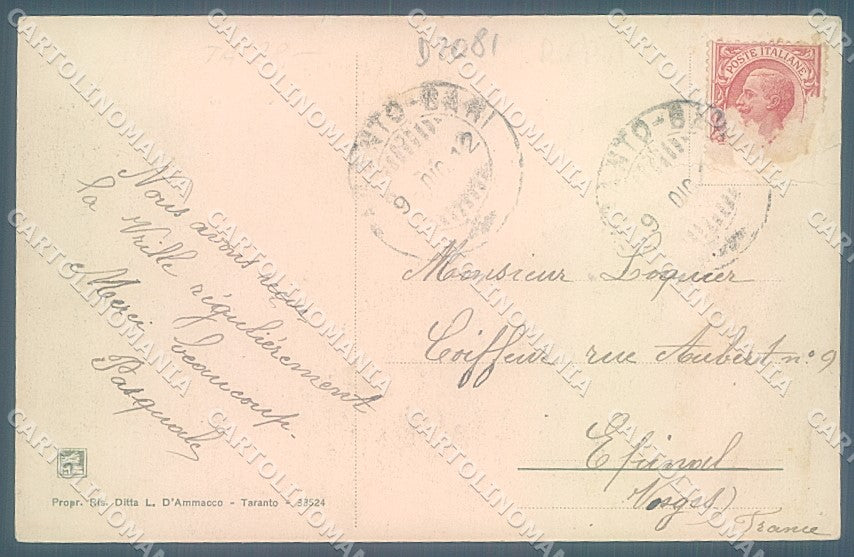 D2081
TARANTO-BARI
9 DIC 12
POSTE ITALIANE
TARANTO-BARI
9 DIC
Nous avons reçu
la Vrille régulièrement
Merci beaucoup.
Pasquale
Monsieur Loquier
Coiffeur rue Aubert n° 9
Epinal
Vosges)
France
Propr. Ris. Ditta L. D'Ammacco - Taranto - 33524
CARTOLINOMANIA